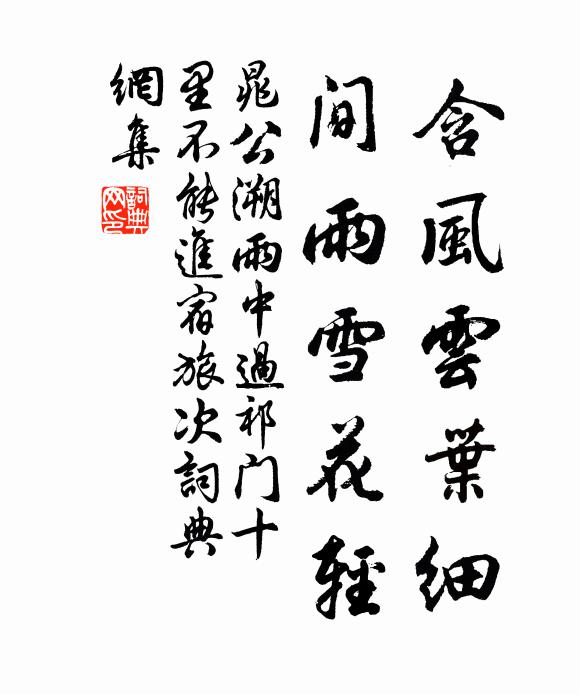 含風雲葉細
間雨雪花輕
晁公溯雨中過祁门十
里不能進宿旅次詞典
網集
詞典
网印